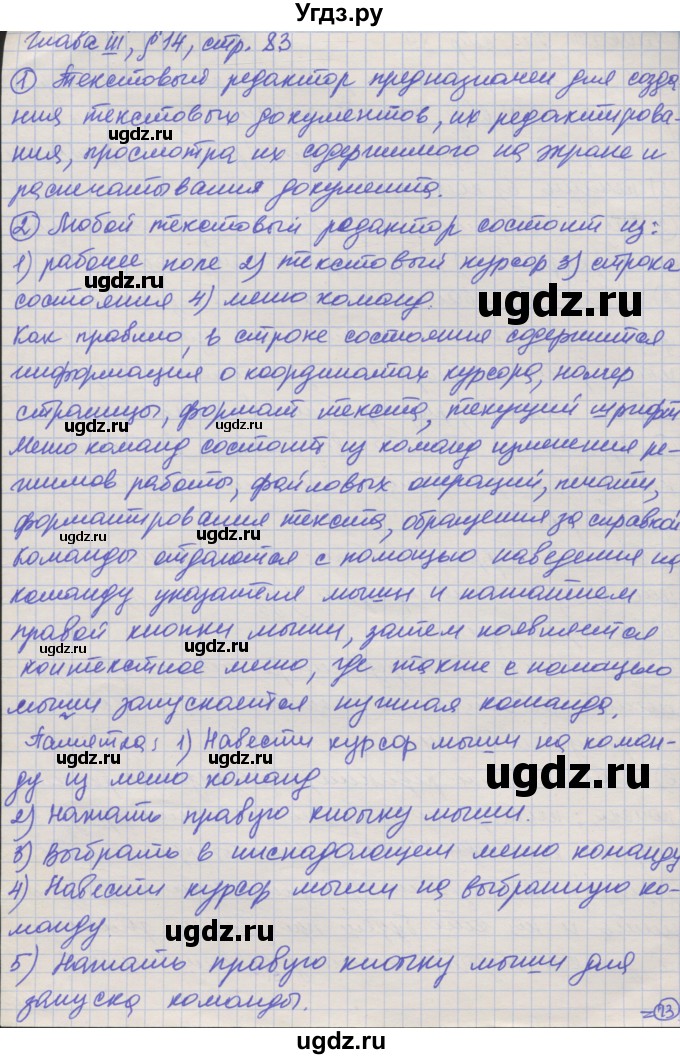 Угдз.ру
Глава III, §14, стр. 83
① Текстовый редактор предназначен для созда
ния текстовых документов, их редактирова-
ugdz.ru ugdz.ru
ния, просмотра их содержимого на экране и
распечатывания документа.
ugdz.ru
② Любой текстовый редактор состоит из:
1) рабочее поле 2) текстовый курсор 3) строка
ugdz.ru
состояния 4) меню команд.
ugdz.ru
Как правило, в строке состояния содержится
информация о координатах курсора, номер
страницы, формат текста, текущий шрифт
ugdz.ru ugdz.ru
Меню команд состоит из команд изменения ре-
жимов работы, файловых операций, печати,
форматирования текста, обращения за справкой
ugdz.ru
Команды отдаются с помощью наведения на
команду указателя мыши и нажатием
правой кнопки мыши, затем появляется
ugdz.ru
контекстное меню, где также с помощью
мыши запускается нужная команда.
Памятка: 1) Навести курсор мыши на коман-
ugdz.ru ugdz.ru
ду из меню команд
2) Нажать правую кнопку мыши.
3) Выбрать в ниспадающем меню команду
4) Навести курсор мыши на выбранную ко-
манду
ugdz.ru
5) Нажать правую кнопку мыши для
запуска команды.
=73
©ugdz.ru